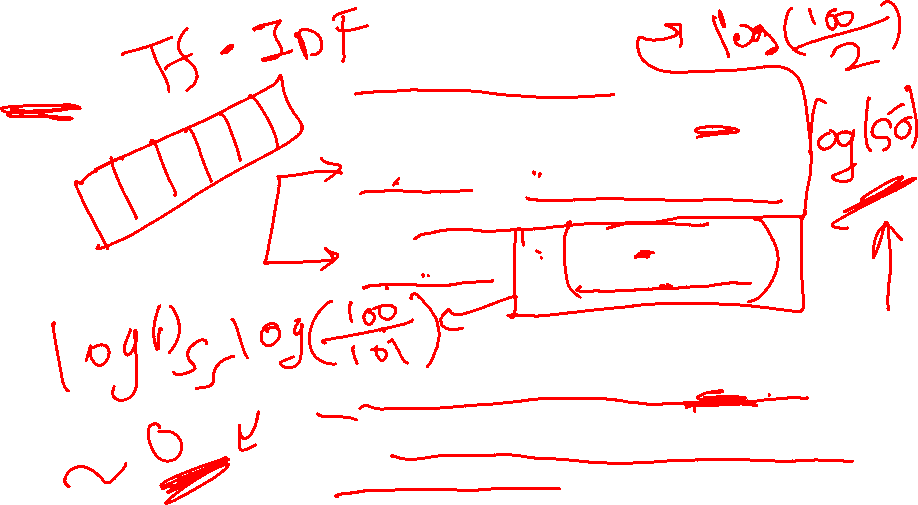 Tf - IDF
log(100/2)
log(50)
log(1) ≤ log(100/101)
~ 0